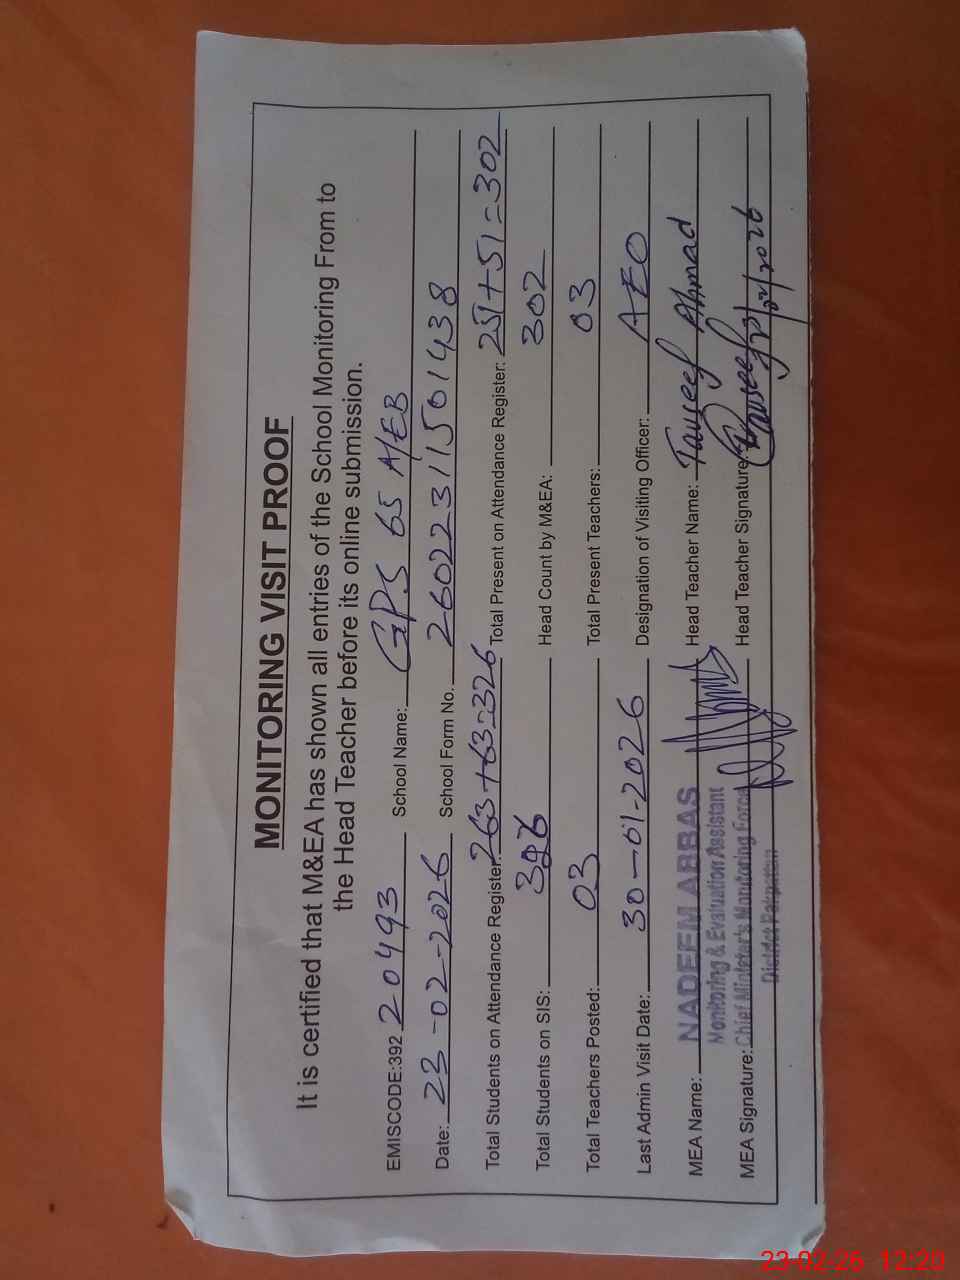 MONITORING VISIT PROOF
It is certified that M&EA has shown all entries of the School Monitoring From to
the Head Teacher before its online submission.
EMISCODE:392 20493 School Name: GPS 65 A/EB
Date: 23-02-2026 School Form No. 26022311501438
Total Students on Attendance Register: 263+63=326 Total Present on Attendance Register: 251+51=302
Total Students on SIS: 326 Head Count by M&EA: 302
Total Teachers Posted: 03 Total Present Teachers: 03
Last Admin Visit Date: 30-01-2026 Designation of Visiting Officer: AEO
MEA Name: NADEEM ABBAS Head Teacher Name: Tauseef Ahmad
Monitoring & Evaluation Assistant
MEA Signature: Chief Minister's Monitoring Force Head Teacher Signature: Tauseef 23/02/2026
District Pakpattan
23-02-25 12:20